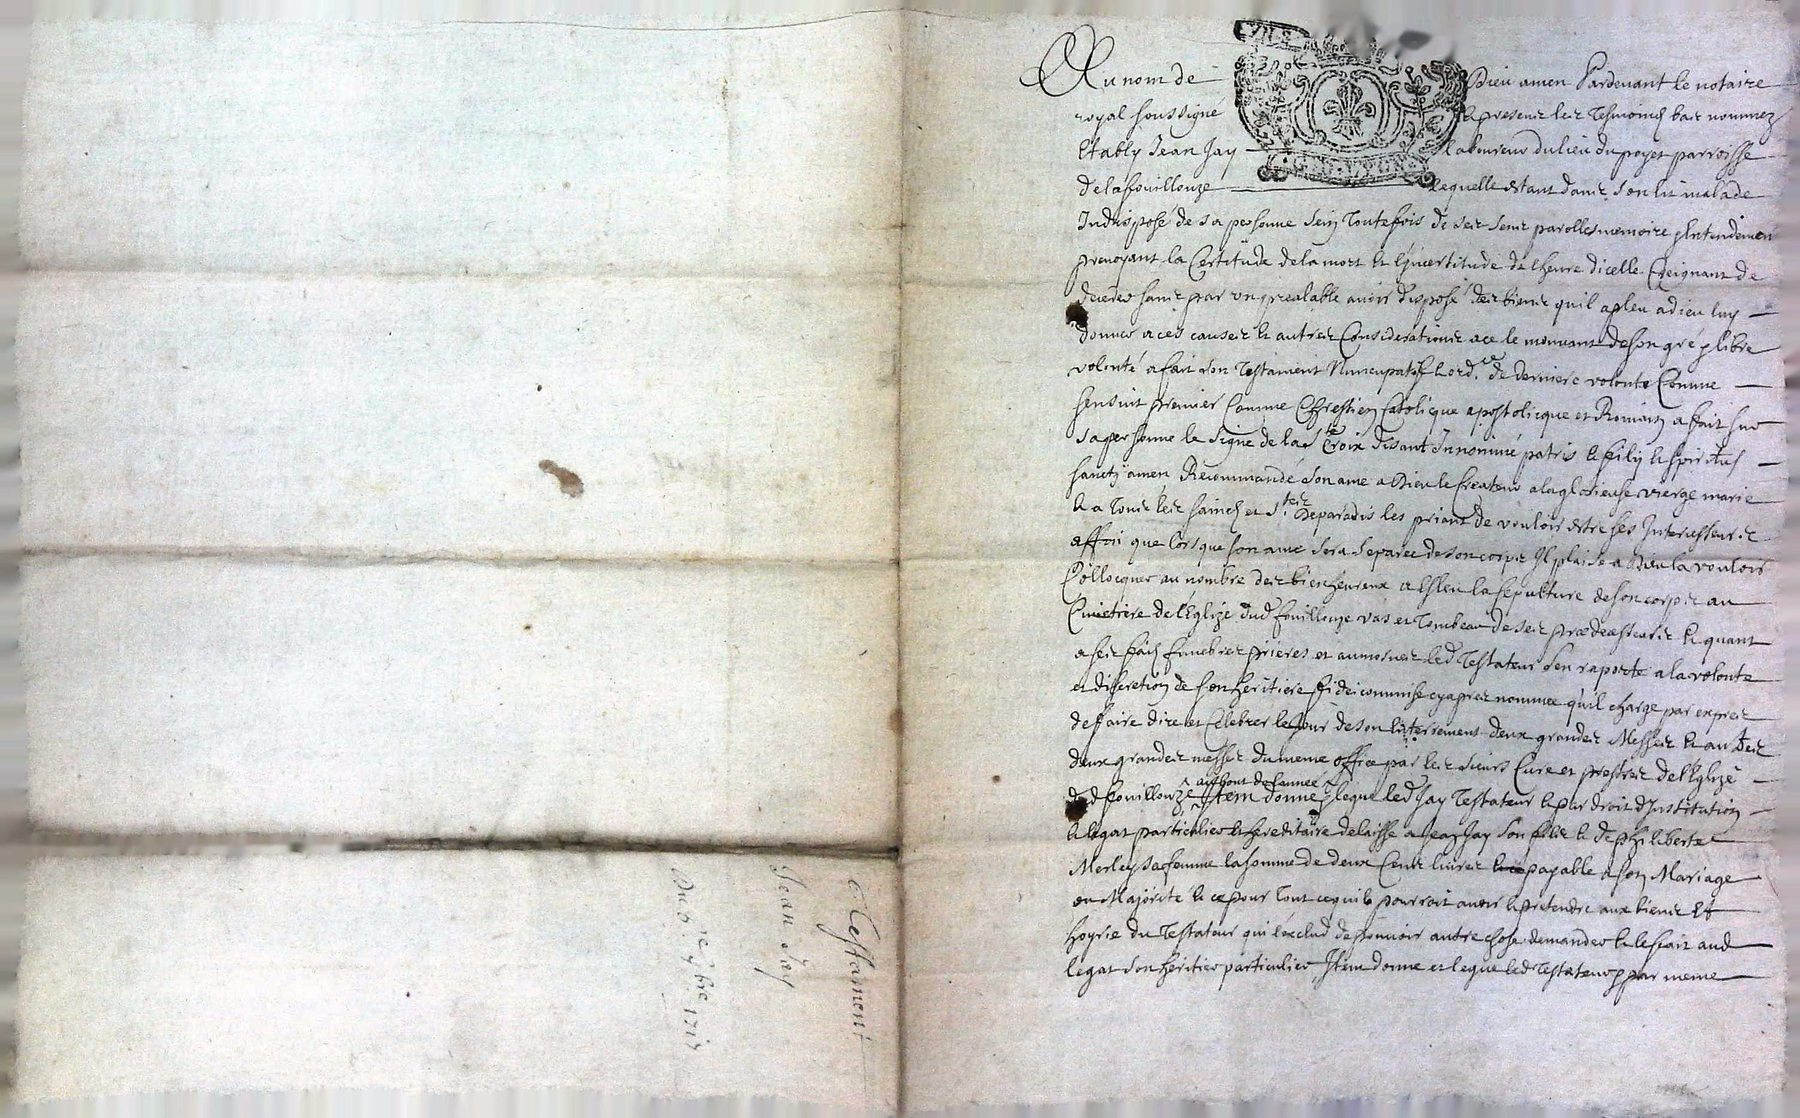 Au nom de Dieu amen Pardevant le notaire
royal soussigné & presens les tesmoins bas nommez
Estably Jean Jay laboureur du lieu du poyet parroisse
de lafouillouze lequelle estant dans son lit malade
Indisposé de sa personne sein toutefois de ses sens parolles memoire & Entendement
prevoyant la Certitude de la mort et lincertitude de lheure dicelle Creignant de
deceder sans par un prealable avoir disposé des biens quil a pleu a dieu luy
donner a ces causes et autres Considerations a ce le mouvant de son gré & libre
volonté a fait son Testament Nuncupatif & ord.ce de derniere volonté Comme
sensuit premier Comme Chrestien Catolicque apostolicque et Romain a fait sur
sa personne le signe de la Ste Croix disant Innominé patris & filij & spiritus
sancty amen Recommandé son ame a Dieu le Createur a la glorieuse vierge marie
& a tous les saincts et stes de paradis les priant de vouloir estre ses Intercesseurs
affin que lors que son ame sera separee de son corps Il plaise a Dieu la vouloir
Collocquer au nombre des bienheureux a Esleu la sepulture de son corps au
Cimetiere de lEglize dud fouillouze vas et tombeau de ses predecesseurs & quant
a ses fais funebres prieres et aumosnes led Testateur sen raporte a la volonté
et discretion de son heritiere fideicommise cy apres nommee quil charge par expres
de faire dire et Celebrer le Jour de son Enterrement deux grandes Messes & au
deux grandes messes du meme office par les sieurs Cure et prestres de lEglize
au bout de lannée
dud fouillouze Item donne & legue led Jay Testateur & par droit dInstitution
& legat particulier & hereditaire delaisse a Jean Jay son fils & de philiberte
Merley sa femme la somme de deux Cens livres payable a son Mariage
ou Majorité & ce pour tout ce quil pourroit avoir & pretendre aux biens Et
hoyrie du Testateur qui lexclud de pouvoir autre chose demander & le fait aud
legat son heritier particulier Item donne et legue led Testateur par meme
Testament
Jean Jay
Du